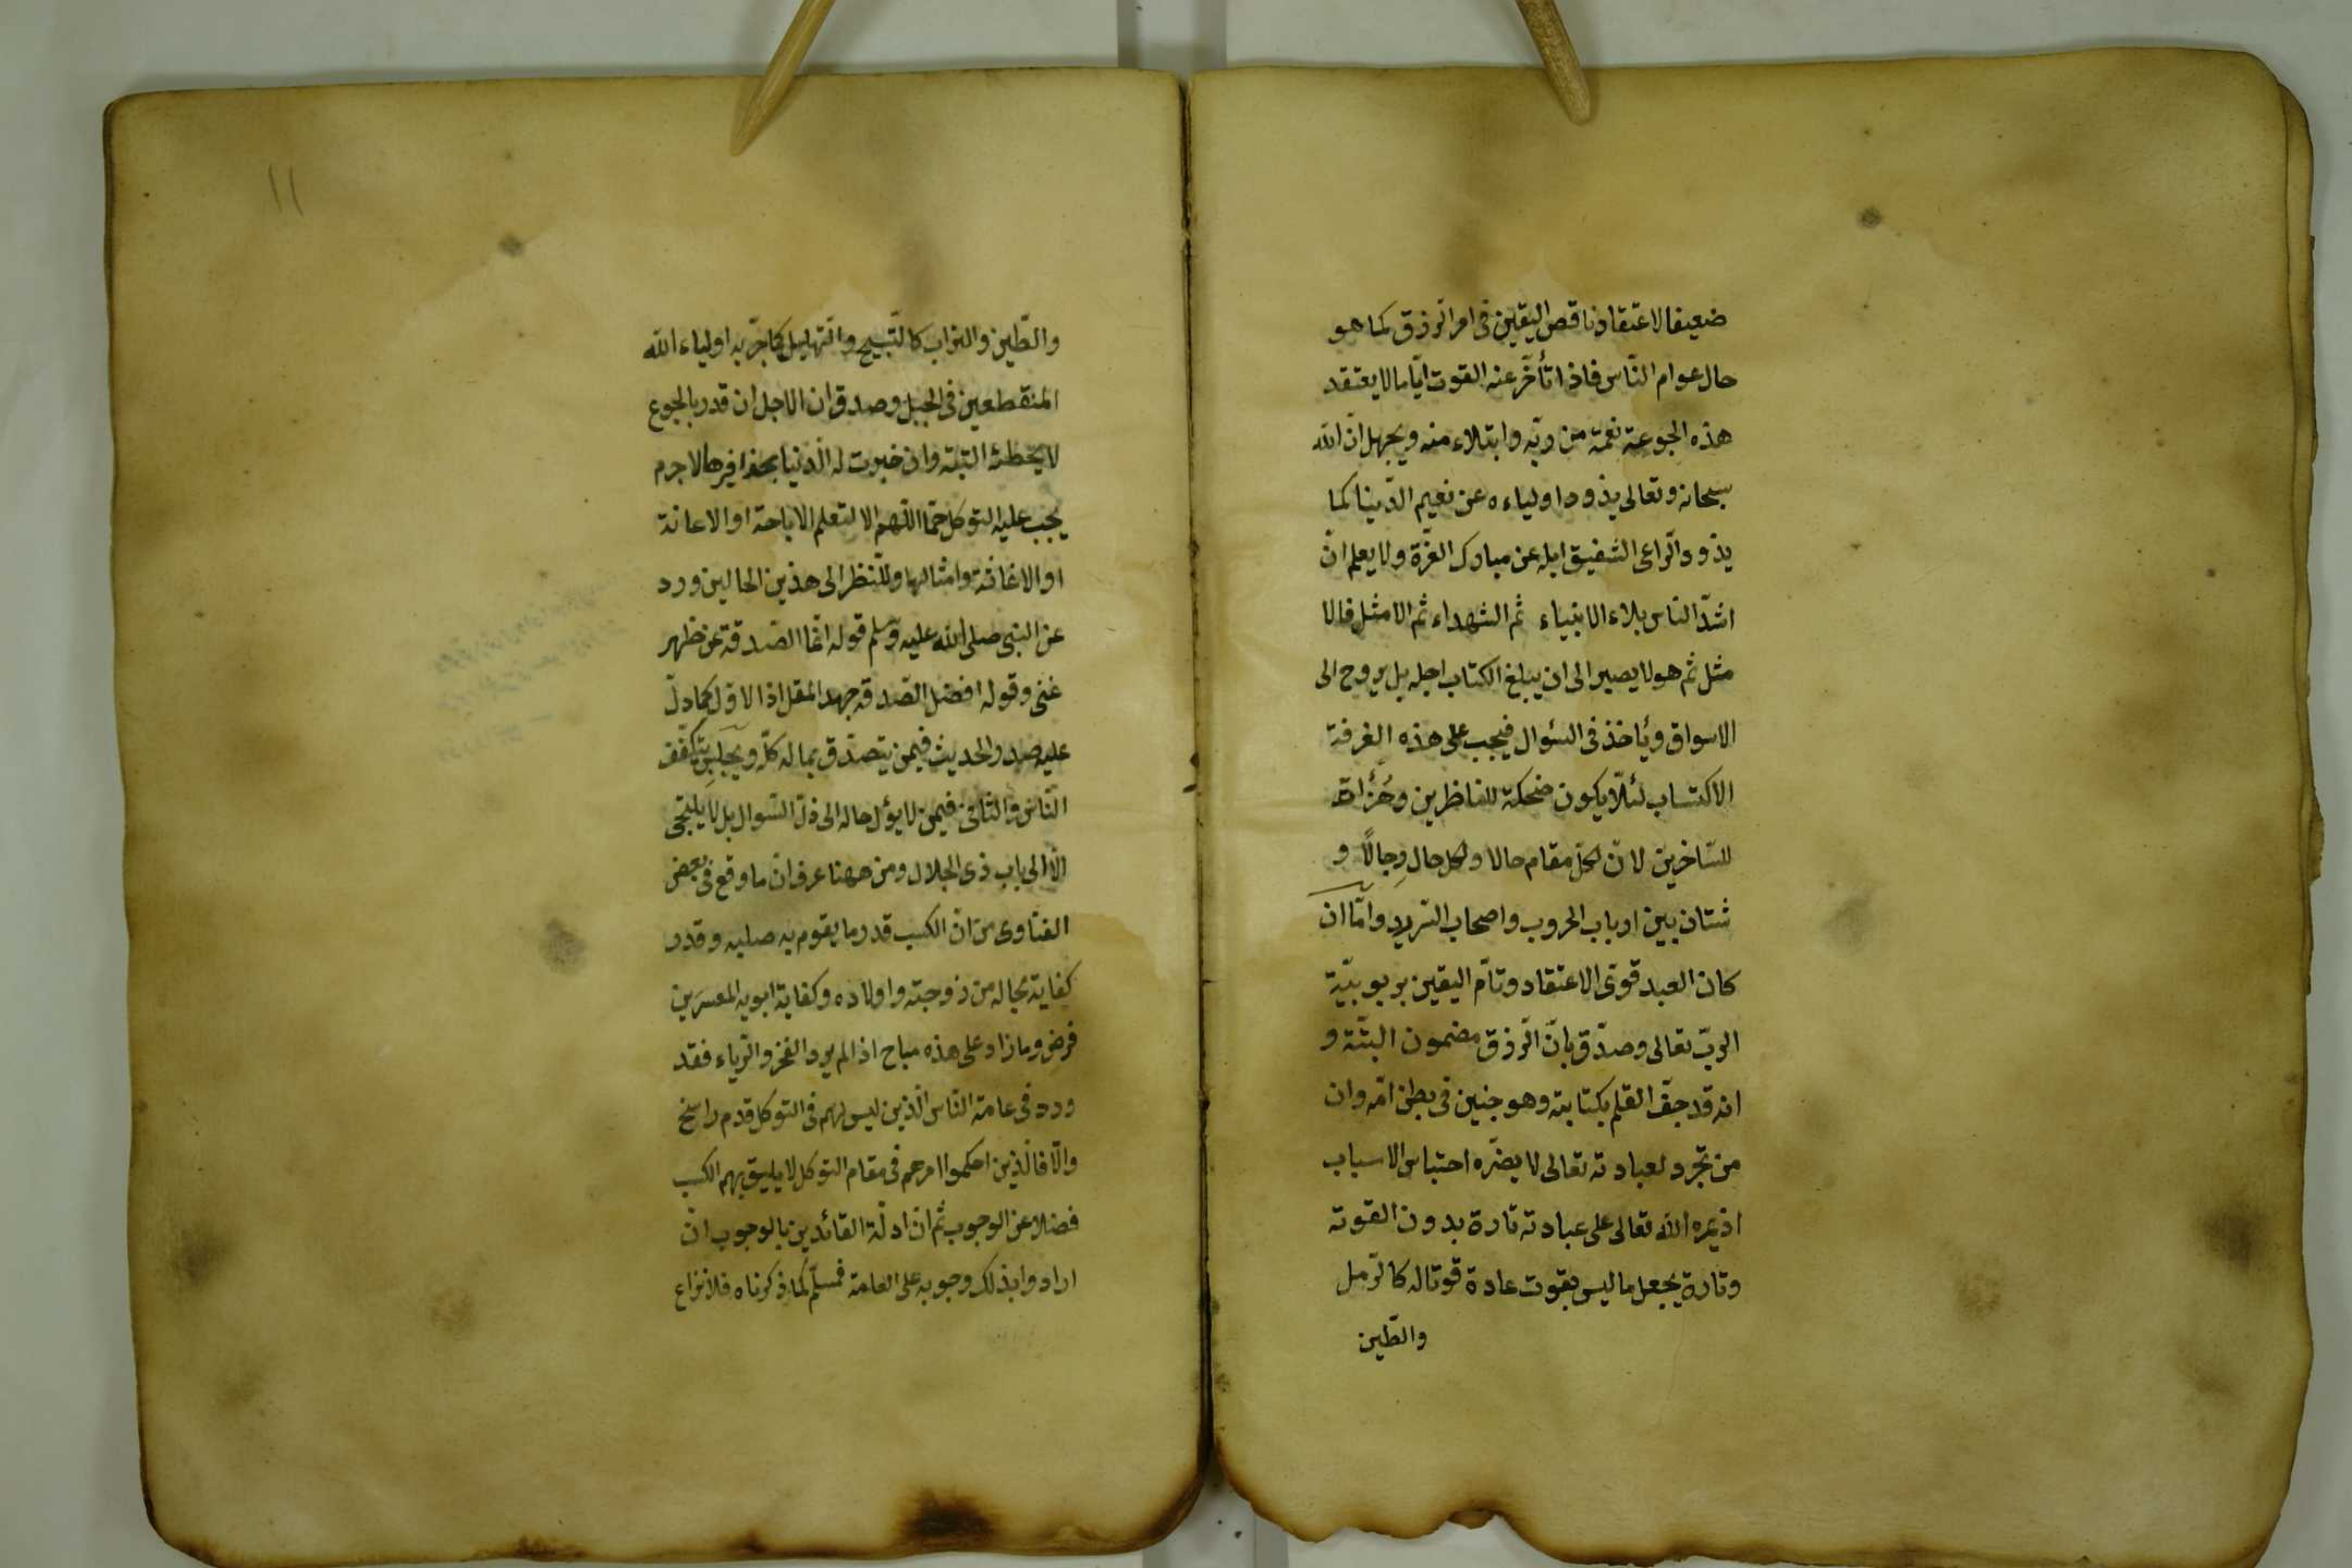 ضعيفا لاعتقاد ناقص اليقين فى امر الرّزق كما هو
حال عوام النّاس فاذا تأخّر عنه القوت ايّاما لا يعتقد
هذه الجوعة نعمة من ربّه وابتلاء منه ويجهل انّ الله
سبحانه وتعالى يذود اولياءه عن نعيم الدّينا كما
يذود الرّاعى الشفيق ابله عن مبارك الغرّة ولا يعلم انّ
اشدّ النّاس بلاء الانبياء ثم الشهداء ثم الامثل فالا
مثل ثم هو لا يصير الى ان يبلغ الكتاب اجله بل يروح الى
الاسواق ويأخذ فى السّوال فيجب على هذه الفرقة
الاكتساب لئلّا يكون ضحكة للناظرين وهُزُأة
للسّاخرين لانّ لكلّ مقام حالا ولكل حال رِجالًا و
شتان بين ارباب الحروب واصحاب الثريد وامّا ان
كان العبد قوىّ الاعتقاد وتامّ اليقين بربوبيّة
الربّ تعالى وصدّق بانّ الرّزق مضمون البتّة و
انه قد جفّ القلم بكتابته وهو جنين فى بطن امّه وان
من تجرّد لعبادته تعالى لا يضرّه احتباس الاسباب
اذ يمره الله تعالى على عبادته تارة بدون القوته
وتارة يجعل ما ليس بقوت عادة قوتا له كالرّمل
والطّين
١١
والطّين والتراب كالتّسبيح والتّهليل كما جرّبه اولياء الله
المنقطعين فى الجبل وصدق ان الاجل ان قدر بالجوع
لا يخطئ البتّة وان خيرت له الدّنيا بحذافيرها لا جرم
يجب عليه التوكل حتما اللّهم الا لتعلم الاباحة او الاعانة
او الاغاثة وامثالها وللنّظر الى هذين الحالين ورد
عن النبى صلى الله عليه وسلم قوله انّما الصّدقة عن ظهر
غنى وقوله افضل الصّدقة جهد المقل اذ الاوّل كما دلّ
عليه صدر الحديث فيمن يتصدّق بماله كلّه ويجلس يتكفّف
النّاس والثّانى فيمن لا يؤل حاله الى ذلّ السّوال بل لا يلتجى
الّا الى باب ذى الجلال ومن ههنا عرف انّ ما وقع فى بعض
الفتاوى من انّ الكسب قدر ما يقوم به صلبه وقدر
كفاية عياله من زوجته واولاده وكفاية ابويه المعسرَين
فرض وما زاد على هذه مباح اذا لم يرد الفخر والرّياء فقد
ورد فى عامة النّاس الّذين ليس لهم فى التوكل قدم راسخ
والّا فالّذين احكموا امرهم فى مقام التوكل لا يليق بهم الكسب
فضلا عن الوجوب ثم انّ ادلّة القائدين بالوجوب انّ
ارادوا بذلك وجوبه على العامة فمسلّم كما ذكرناه فلا نزاع